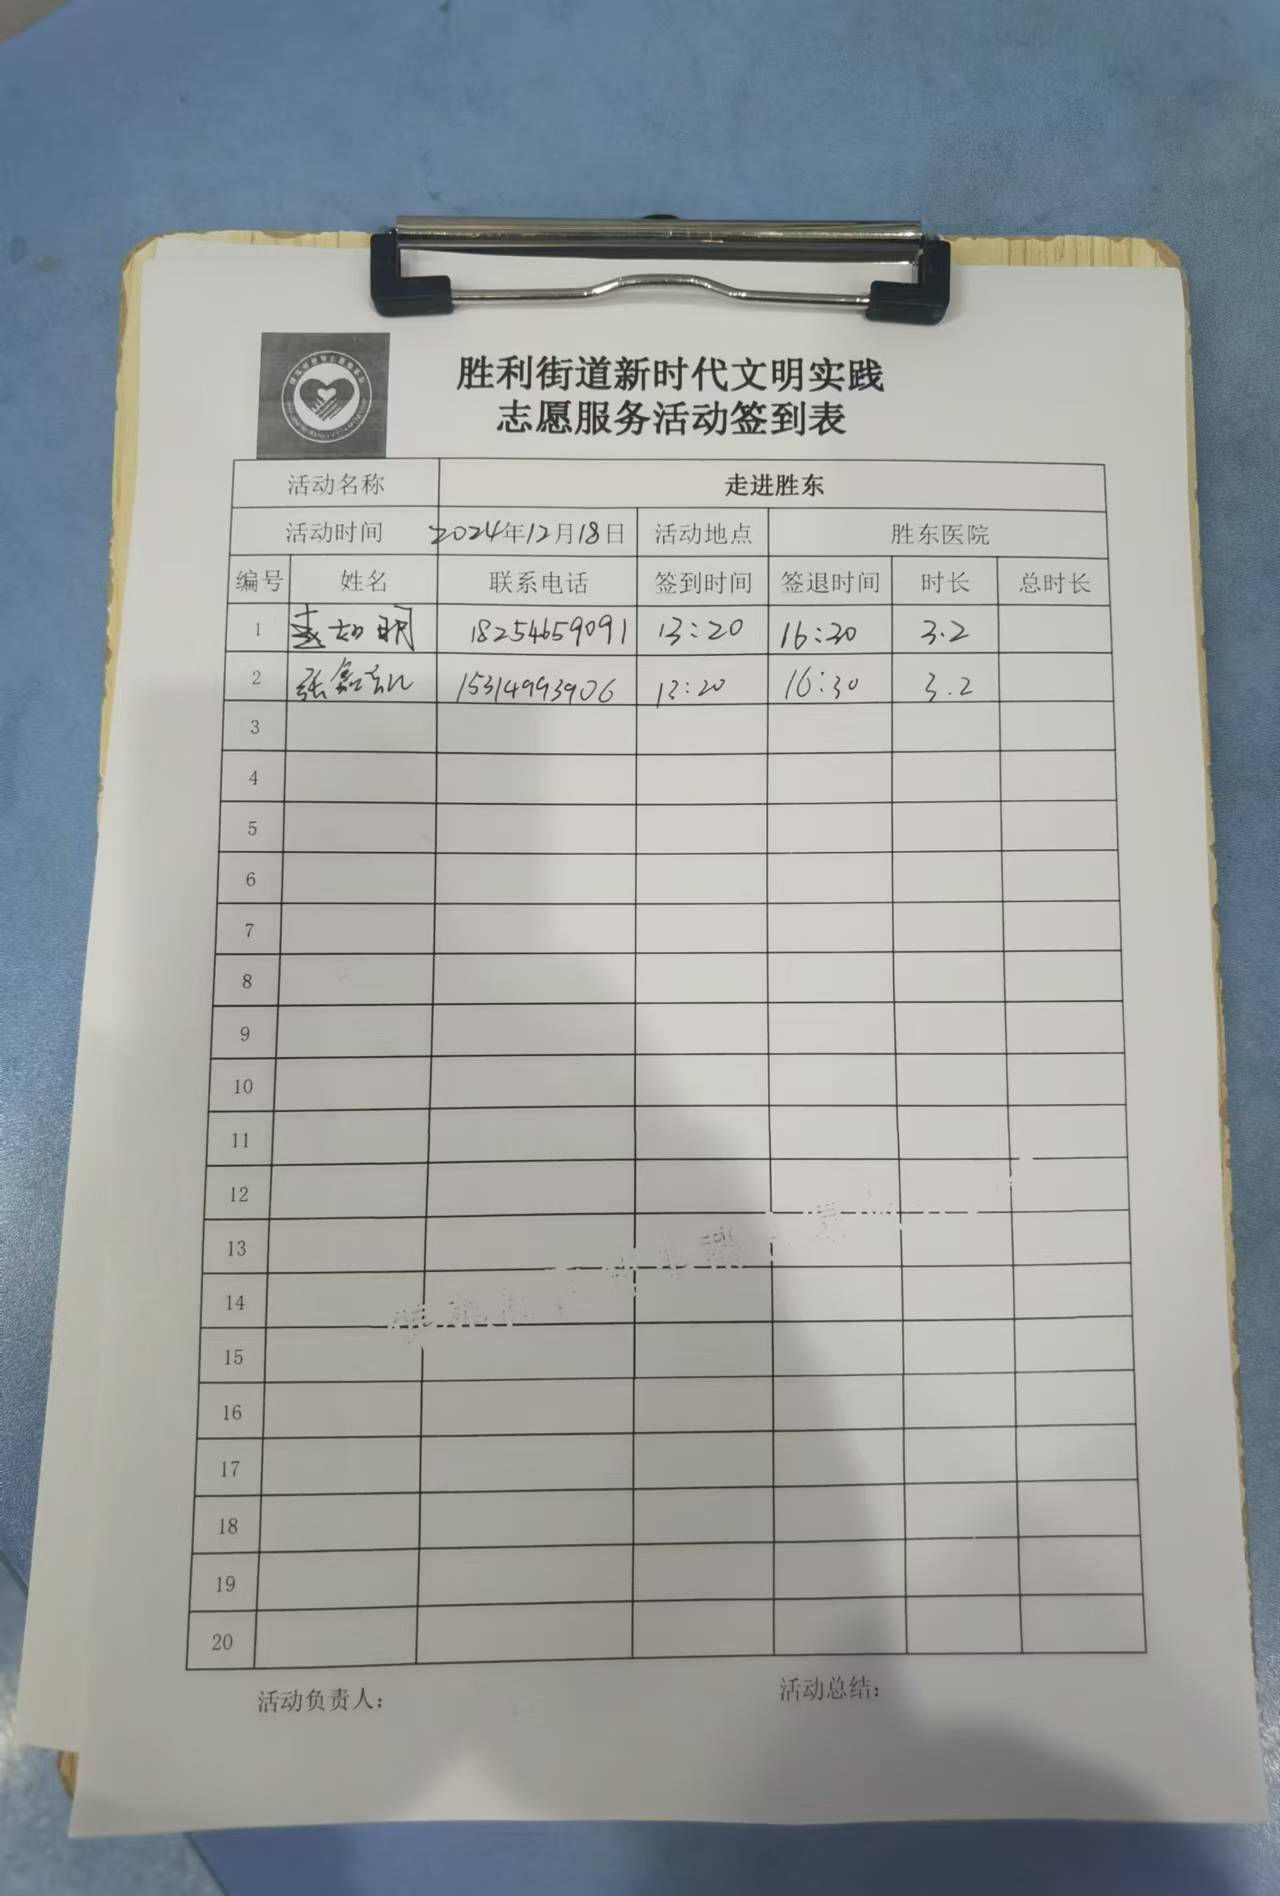 胜利街道新时代文明实践
志愿服务活动签到表
活动名称 走进胜东
活动时间 2024年12月18日 活动地点 胜东医院
编号 姓名 联系电话 签到时间 签退时间 时长 总时长
1 18254659091 13:20 16:30 3.2
2 张鑫 15314993906 13:20 16:30 3.2
3
4
5
6
7
8
9
10
11
12
13
14
15
16
17
18
19
20
活动负责人: 活动总结: